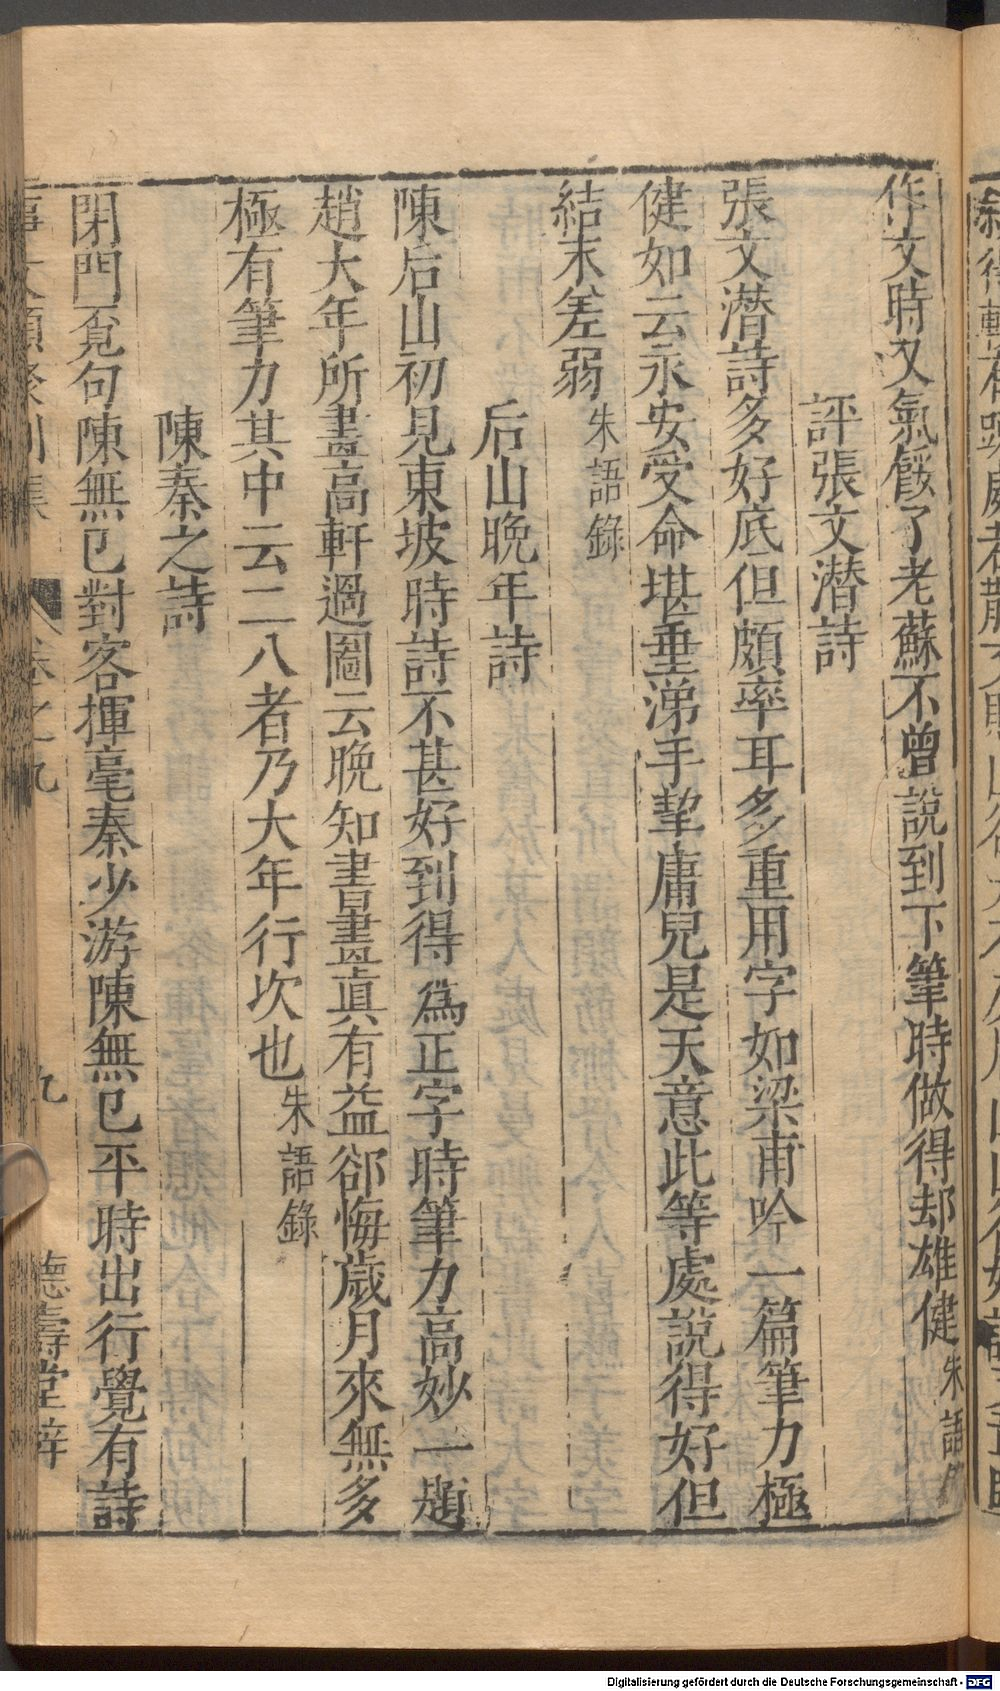 作文時又氣餒了老蘇不曾說到下筆時做得却雄健朱語
評張文潛詩
張文潛詩多好底但頗率耳多重用字如梁甫吟一篇筆力極
健如云永安受命堪垂涕手挈庸兒是天意此等處說得好但
結末差弱朱語錄
后山晚年詩
陳后山初見東坡時詩不甚好到得為正字時筆力高妙一題
趙大年所畫高軒過圖云晚知書畫眞有益郤悔歲月來無多
極有筆力其中云二八者乃大年行次也朱語錄
陳秦之詩
閉門覓句陳無己對客揮毫秦少游陳無己平時出行覺有詩
卷之九
九
德壽堂梓
Digitalisierung gefördert durch die Deutsche Forschungsgemeinschaft - DFG